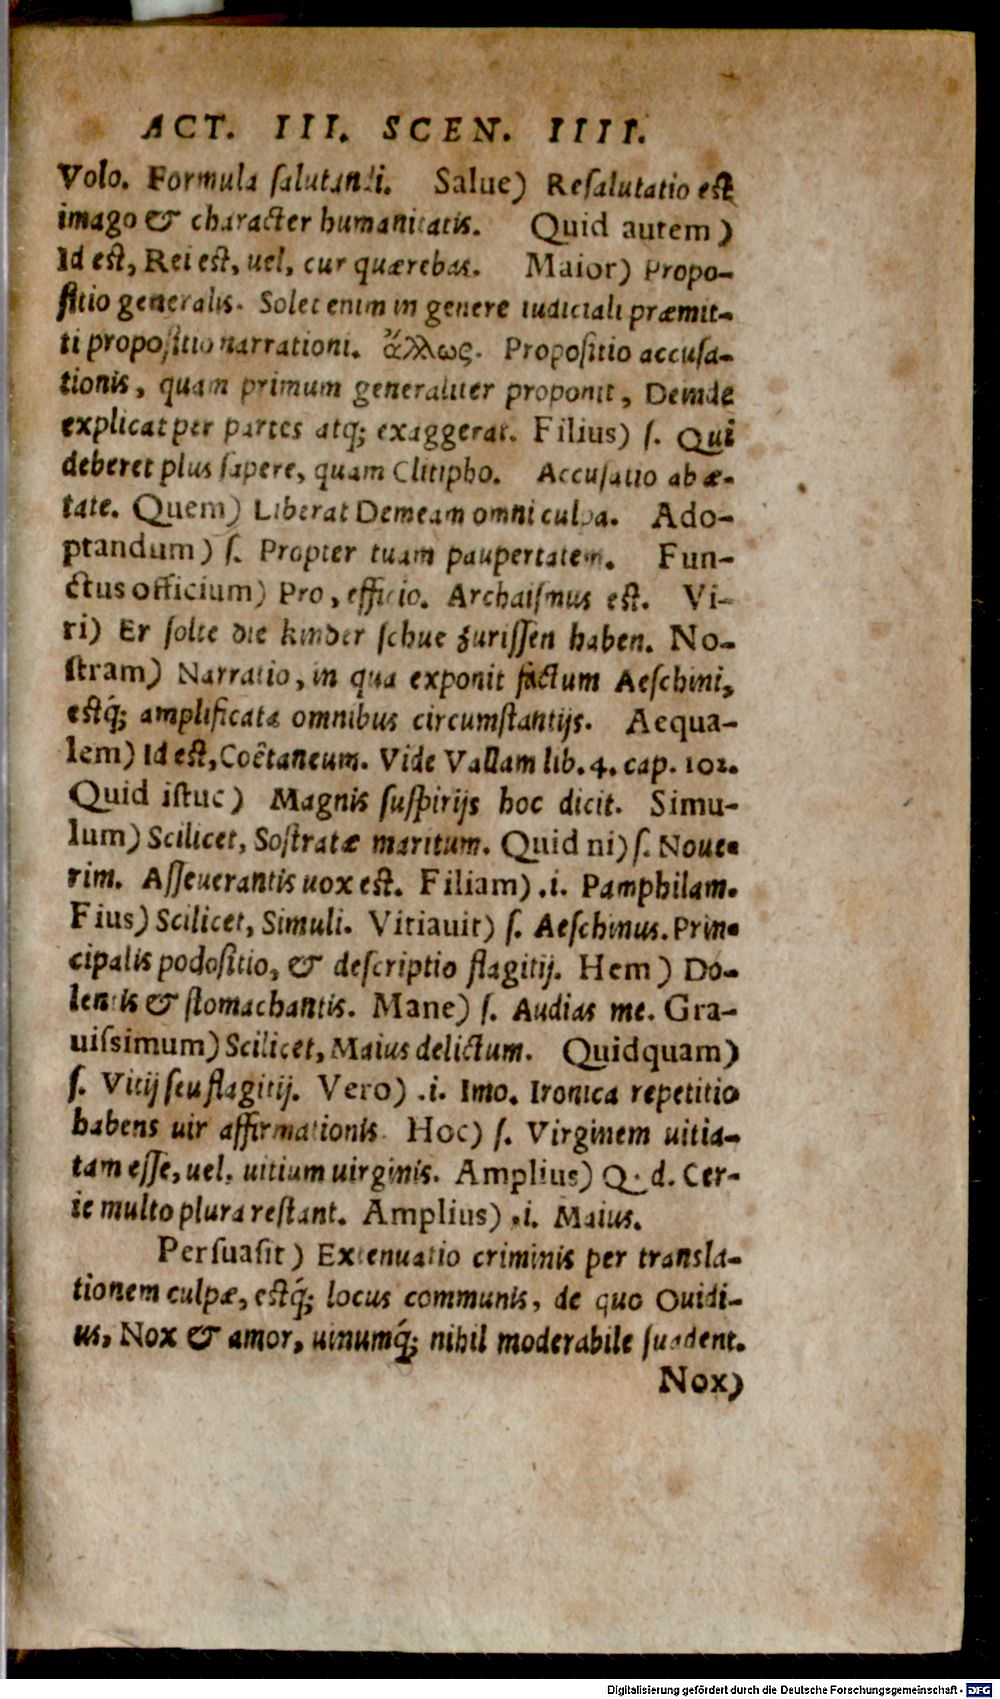 ACT. III. SCEN. IIII.
Volo. Formula ſalutandi. Salue) Reſalutatio eſt
imago & character humanitatis. Quid autem)
Id eſt, Rei eſt, uel, cur quærebas. Maior) Propo-
ſitio generalis. Solet enim in genere iudiciali præmit-
ti propoſitio narrationi. ἄλλως. Propoſitio accuſa-
tionis, quam primum generaliter proponit, Deinde
explicat per partes atq; exaggerat. Filius) ſ. Qui
deberet plus ſapere, quam Clitipho. Accuſatio ab æ-
tate. Quem) Liberat Demeam omni culpa. Ado-
ptandum) ſ. Propter tuam paupertatem. Fun-
ctus officium) Pro, efficio. Archaiſmus eſt. Vi-
ri) Er ſolte die kinder ſchue zuriſſen haben. No-
ſtram) Narratio, in qua exponit factum Aeſchini,
eſtq́; amplificata omnibus circumſtantijs. Aequa-
lem) Id eſt, Coêtaneum. Vide Vallam lib. 4. cap. 102.
Quid iſtuc) Magnis ſuſpirijs hoc dicit. Simu-
lum) Scilicet, Soſtratæ maritum. Quid ni) ſ. Noue-
rim. Aſſeuerantis uox eſt. Filiam) .i. Pamphilam.
Eius) Scilicet, Simuli. Vitiauit) ſ. Aeſchinus. Prin-
cipalis podoſitio, & deſcriptio flagitij. Hem) Do-
lentis & ſtomachantis. Mane) ſ. Audias me. Gra-
uiſsimum) Scilicet, Maius delictum. Quidquam)
ſ. Vitij ſeu flagitij. Vero) .i. Imo. Ironica repetitio
habens uir affirmationis. Hoc) ſ. Virginem uitia-
tam eſſe, uel, uitium uirginis. Amplius) Q. d. Cer-
te multo plura reſtant. Amplius) .i. Maius.
Perſuaſit) Extenuatio criminis per transla-
tionem culpæ, eſtq́; locus communis, de quo Ouidi-
us, Nox & amor, uinumq́; nihil moderabile ſuadent.
Nox)
Digitalisierung gefördert durch die Deutsche Forschungsgemeinschaft - DFG